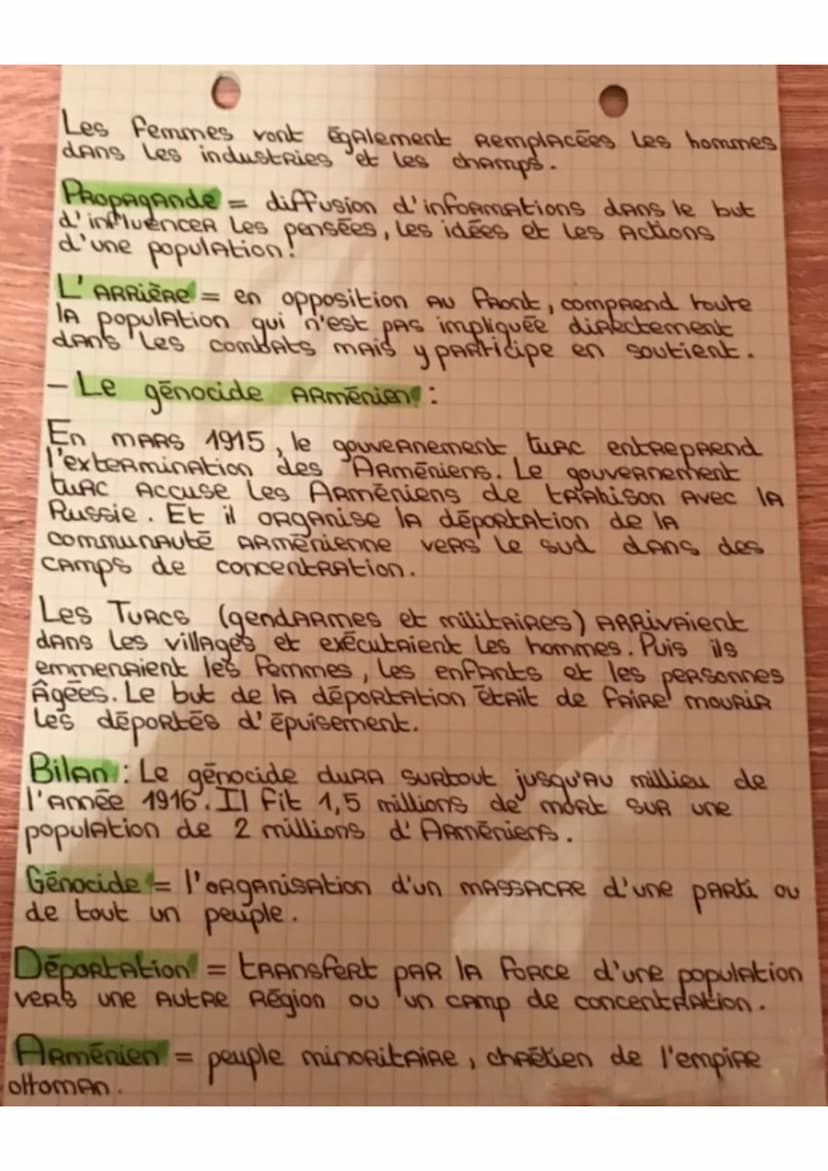 Les femmes vont également remplacées les hommes
dans les industries et les champs.
Propagande = diffusion d'informations dans le but
d'influencer les pensées, les idées et les actions
d'une population.
L'arrière = en opposition au front, comprend toute
la population qui n'est pas impliquée directement
dans les combats mais y participe en soutient.
- Le génocide arménien :
En mars 1915, le gouvernement turc entreprend
l'extermination des Arméniens. Le gouvernement
turc accuse les Arméniens de trahison avec la
Russie. Et il organise la déportation de la
communauté arménienne vers le sud dans des
camps de concentration.
Les Turcs (gendarmes et militaires) arrivaient
dans les villages et exécutaient les hommes. Puis ils
emmenaient les femmes, les enfants et les personnes
Âgées. Le but de la déportation était de faire mourir
les déportés d'épuisement.
Bilan : Le génocide dura surtout jusqu'au millieu de
l'année 1916. Il fit 1,5 millions de mort sur une
population de 2 millions d'Arméniens.
Génocide = l'organisation d'un massacre d'une parti ou
de tout un peuple.
Déportation = transfert par la force d'une population
vers une autre région ou un camp de concentration.
Arménien = peuple minoritaire, chrétien de l'empire
ottoman.